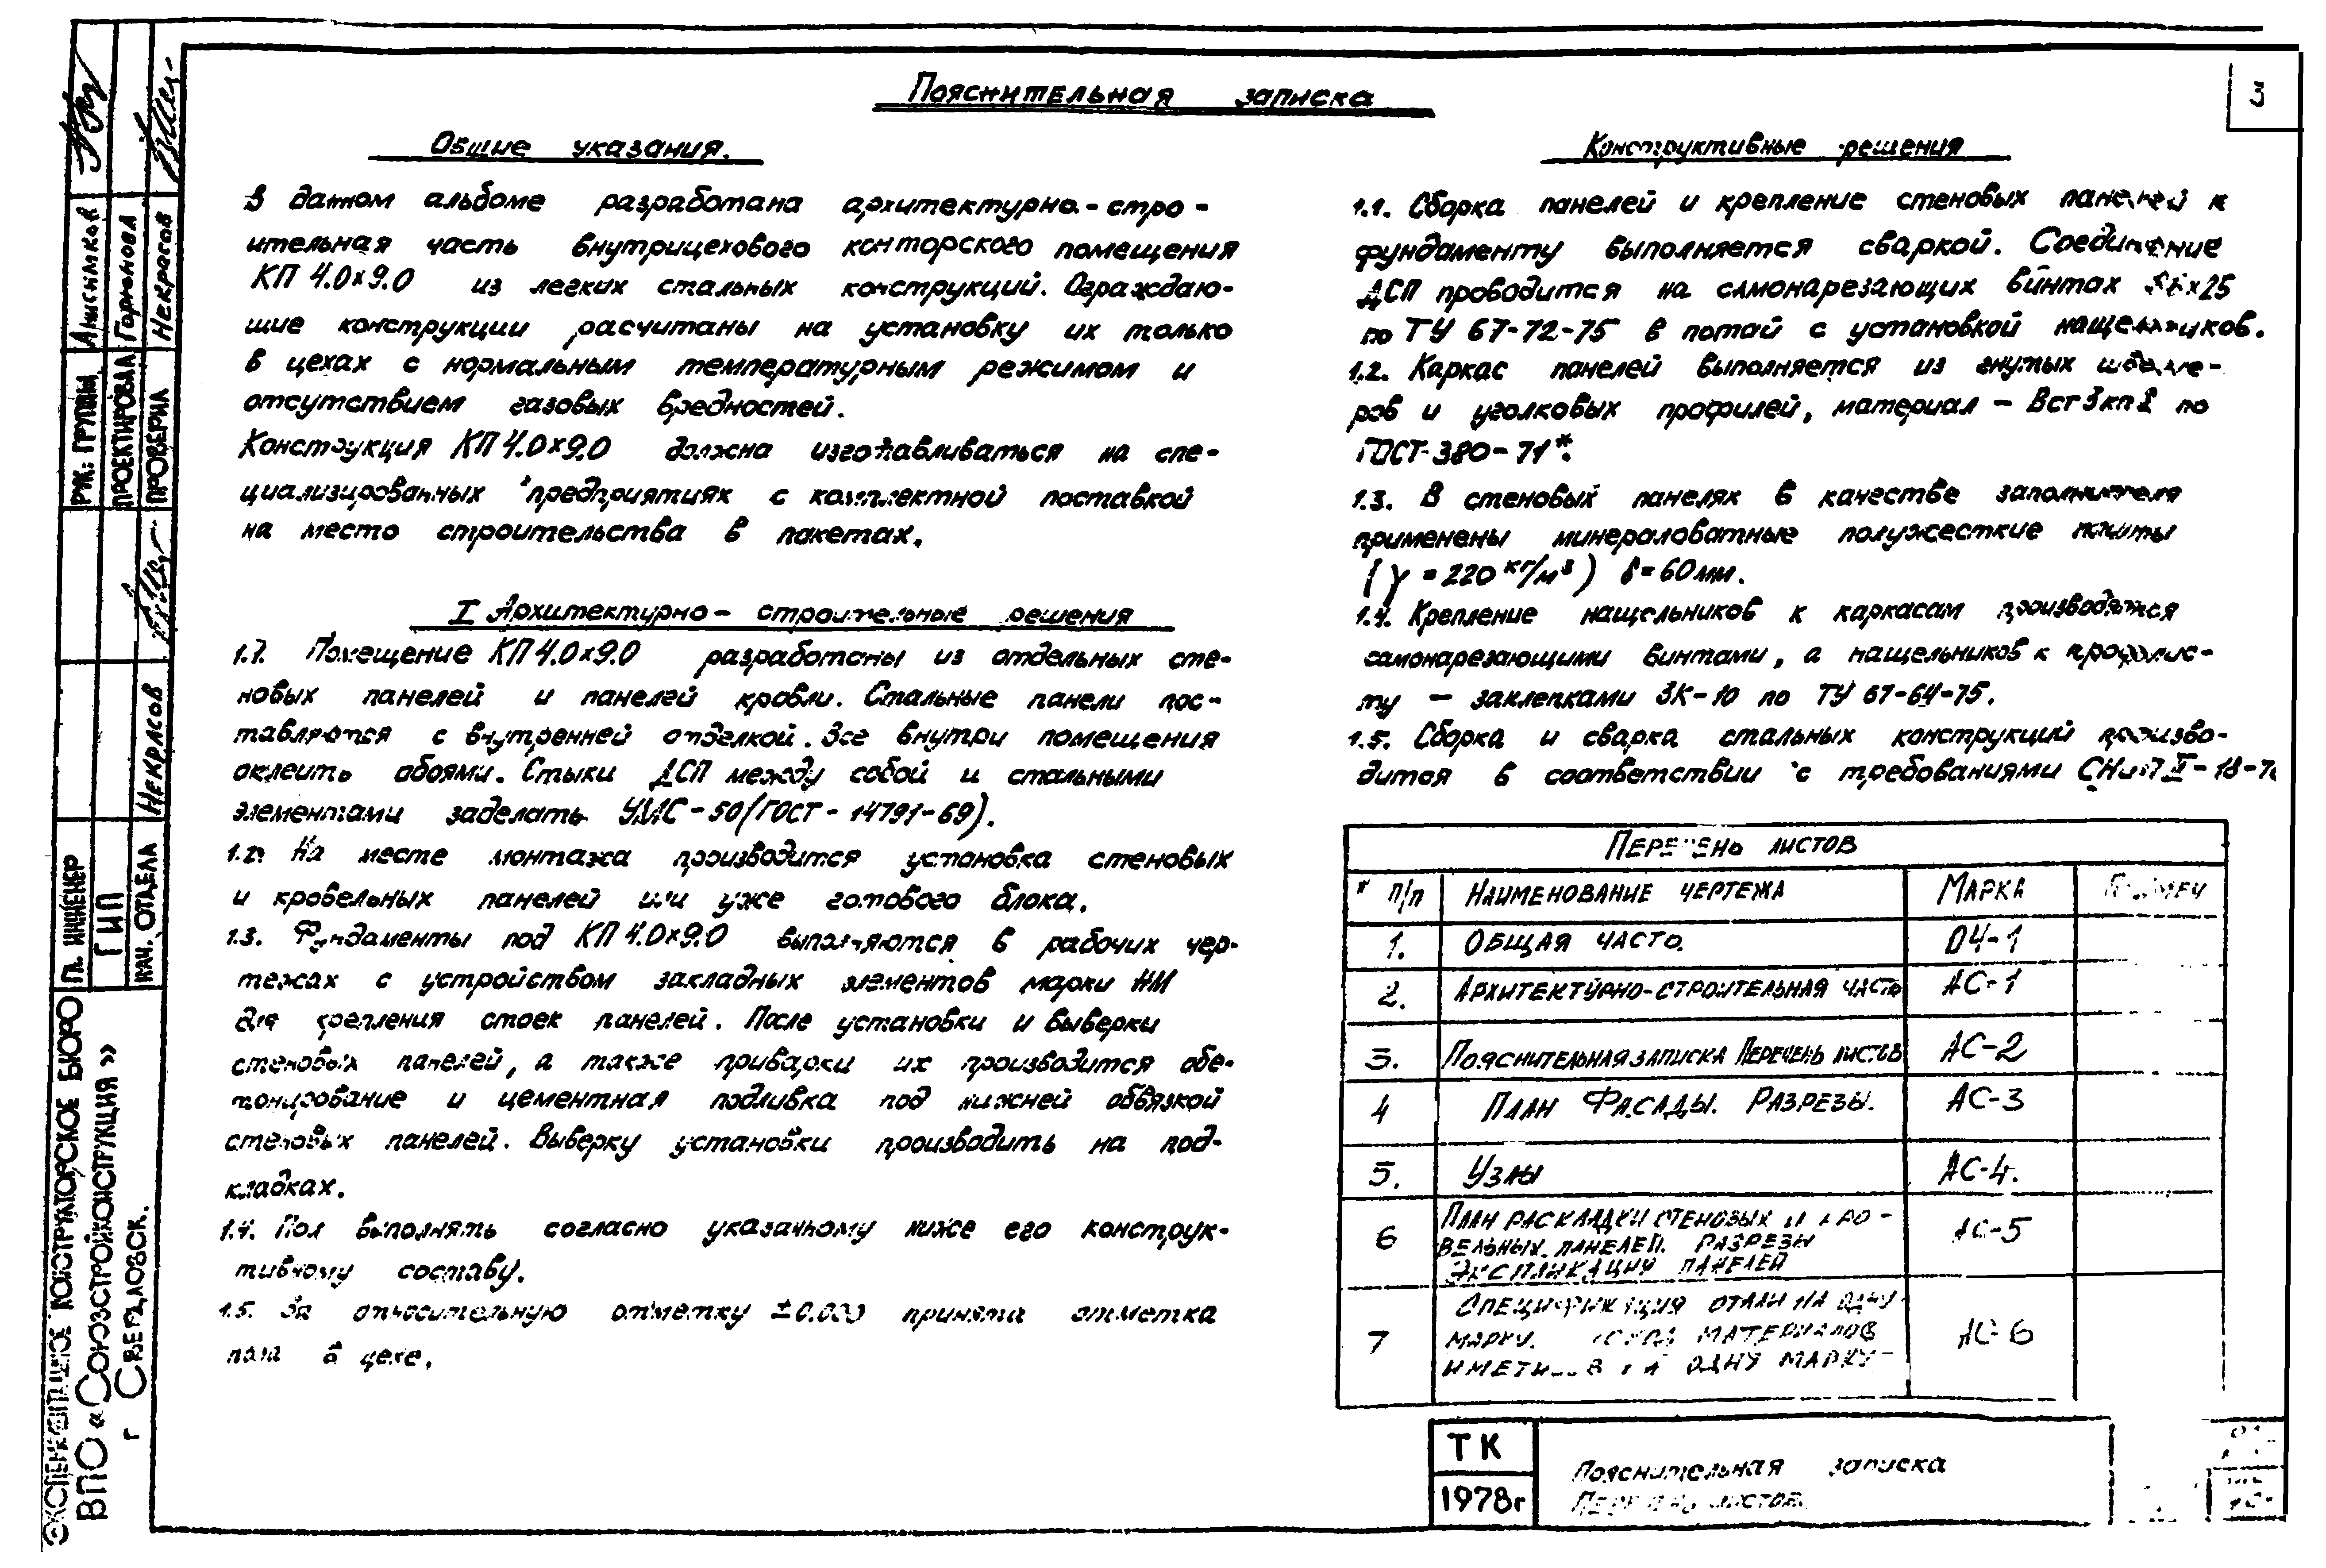 Пояснительная записка
3
Общие указания.
В данном альбоме разработана архитектурно-стро-
ительная часть внутрицехового конторского помещения
КП 4.0х9.0 из легких стальных конструкций. Ограждаю-
щие конструкции расчитаны на установку их только
в цехах с нормальным температурным режимом и
отсутствием газовых вредностей.
Конструкция КП 4.0х9.0 должна изготавливаться на спе-
циализированных предприятиях с комплектной поставкой
на место строительства в пакетах.
I Архитектурно-строительные решения
1.1. Помещение КП 4.0х9.0 разработаны из отдельных сте-
новых панелей и панелей кровли. Стальные панели пос-
тавляются с внутренней отделкой. Все внутри помещения
оклеить обоями. Стыки ДСП между собой и стальными
элементами заделать УМС-50 (ГОСТ-14791-69).
1.2. На месте монтажа производится установка стеновых
и кровельных панелей или уже готового блока.
1.3. Фундаменты под КП 4.0х9.0 выполняются в рабочих чер-
тежах с устройством закладных элементов марки НМ
для крепления стоек панелей. После установки и выверки
стеновых панелей, а также приварки их производится обе-
тонирование и цементная подливка под нижней обвязкой
стеновых панелей. Выверку установки производить на под-
кладках.
1.4. Пол выполнять согласно указанному ниже его конструк-
тивному составу.
1.5. За относительную отметку ±0.000 принята отметка
пола в цехе.
Конструктивные решения
1.1. Сборка панелей и крепление стеновых панелей к
фундаменту выполняется сваркой. Соединение
ДСП проводится на самонарезающих винтах х25
по ТУ 67-72-75 в потай с установкой нащельников.
1.2. Каркас панелей выполняется из гнутых швелле-
ров и уголковых профилей, материал – Вст3кп2 по
ГОСТ-380-71*.
1.3. В стеновых панелях в качестве заполнителя
применены минераловатные полужесткие плиты
(γ = 220 кг/м³) δ = 60мм.
1.4. Крепление нащельников к каркасам производятся
самонарезающими винтами, а нащельников к профлис-
ту – заклепками ЗК-10 по ТУ 67-64-75.
1.5. Сборка и сварка стальных конструкций произво-
дится в соответствии с требованиями СНиП III-18-7
Перечень листов
п/п Наименование чертежа Марка Примеч
1. Общая часть. ОЧ-1
2. Архитектурно-строительная часть АС-1
3. Пояснительная записка Перечень листов АС-2
4 План Фасады. Разрезы. АС-3
5. Узлы АС-4.
6 План раскладки стеновых и кро-
вельных панелей. Разрезы
Экспликацину панелей АС-5
7 Спецификация стали на одну
марку. материалов
одну марку АС-6
ТК
1978г
Пояснительная записка
Перечень листов.
Рук. группы Анисимков
Проектировал Горюнова
Проверил Некрасов
Гл. инженер
ГИП
Нач. отдела Некрасов
Экспериментальное конструкторское бюро
ВПО «Союзстройконструкция»
г Свердловск.